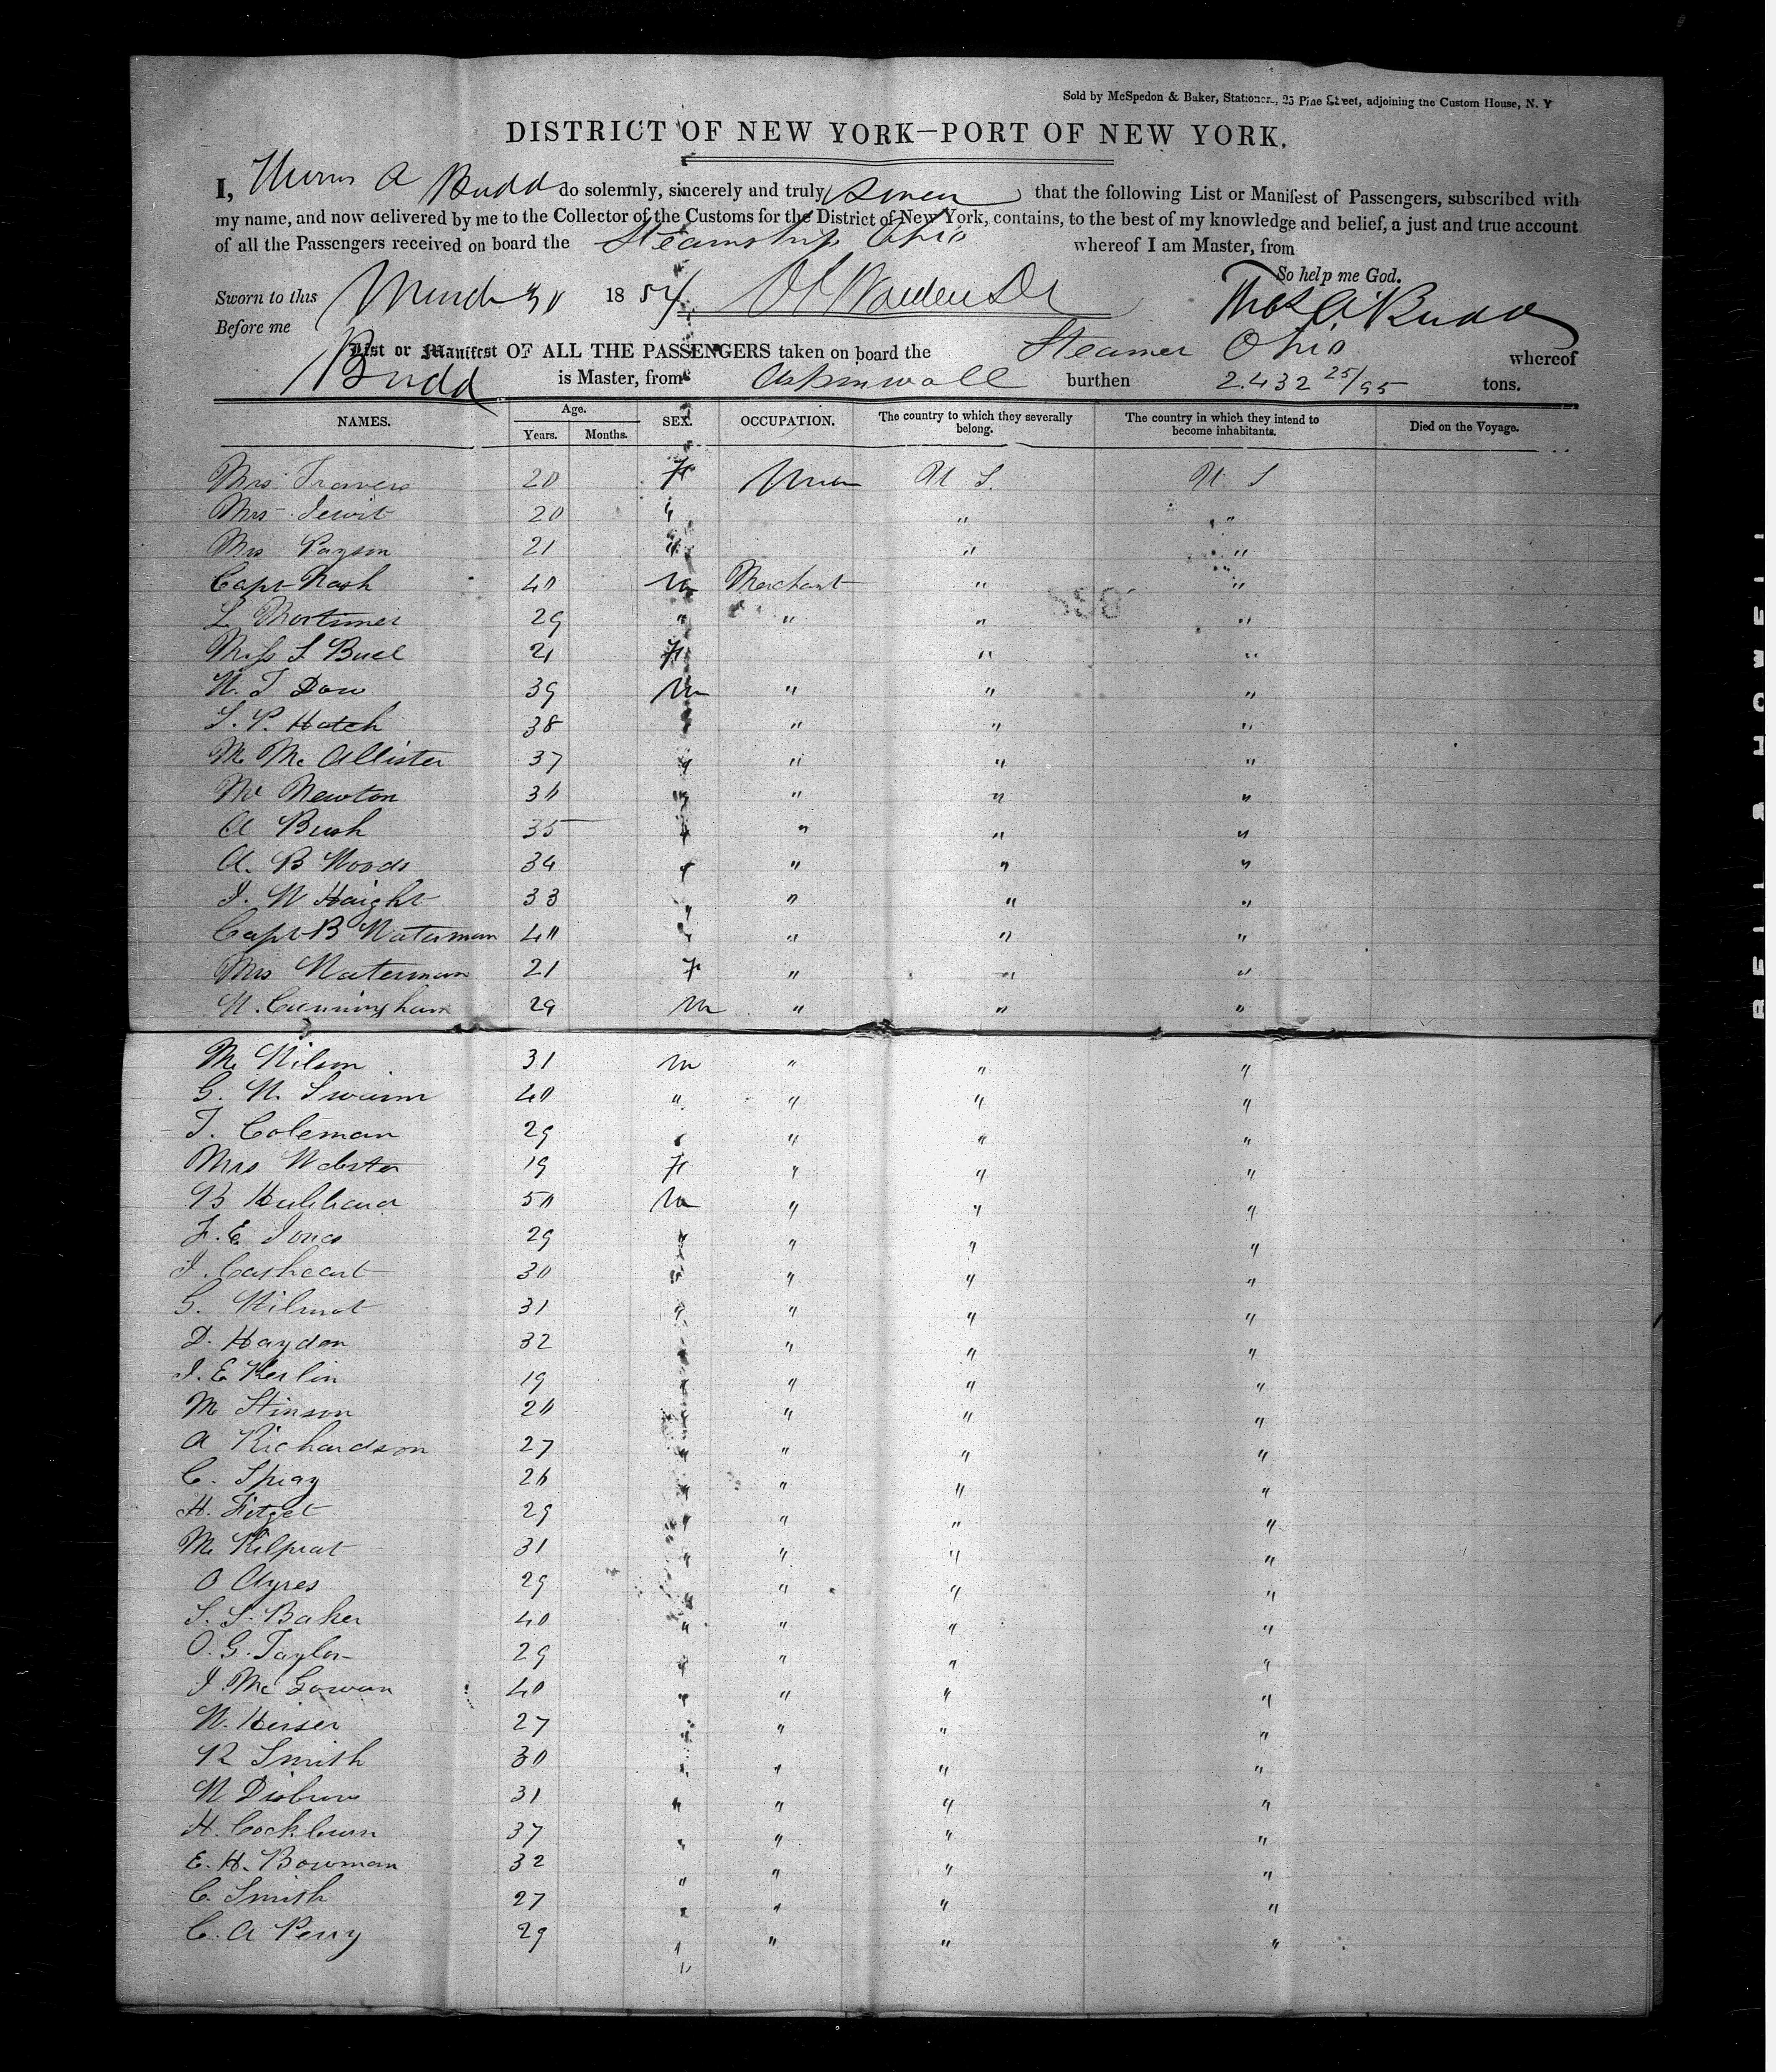 Sold by McSpedon & Baker, Stationers, 25 Pine Street, adjoining the Custom House, N. Y
DISTRICT OF NEW YORK—PORT OF NEW YORK.
I, Thomas A Budd do solemnly, sincerely and truly swear that the following List or Manifest of Passengers, subscribed with
my name, and now delivered by me to the Collector of the Customs for the District of New York, contains, to the best of my knowledge and belief, a just and true account
of all the Passengers received on board the Steamship Ohio whereof I am Master, from
So help me God.
Sworn to this March 30 1854 Thos A Budd
Before me
List or Manifest OF ALL THE PASSENGERS taken on board the Steamer Ohio whereof
Budd is Master, from Aspinwall burthen 2.432 25/95 tons.
NAMES. Age. Years. Months. SEX. OCCUPATION. The country to which they severally belong. The country in which they intend to become inhabitants. Died on the Voyage.
Mrs Travers 20 F U S. U. S
Mrs Jewit 20 " " "
Mrs Payson 21 " " "
Capt Nash 40 M Merchant " "
L Mortimer 29 " " " "
Miss S Buel 21 F " "
W. T Dow 39 M " " "
S. P. Hatch 38 " " " "
M McAllister 37 " " " "
Mr Newton 30 " " " "
A Bush 35 " " " "
A. B Woods 34 " " " "
J. W Haight 33 " " " "
Capt B Waterman 40 " " " "
Mrs Waterman 21 F " " "
W. Cunningham 29 M " " "
M. Wilson 31 M " " "
G. W. Swaim 40 " " " "
T. Coleman 29 " " " "
Mrs Webster 19 F " " "
B Hubbard 50 M " " "
F. E Jones 29 " " " "
J. Casheart 30 " " " "
G. Wilmot 31 " " " "
D. Haydon 32 " " " "
J. E Kerlin 19 " " " "
M Stinson 20 " " " "
A Richardson 27 " " " "
C. Spray 26 " " " "
H. Fitzget 29 " " " "
M. Kilprat 31 " " " "
O Ayres 29 " " " "
S. S. Baker 40 " " " "
O. G. Taylor 29 " " " "
J McGowan 40 " " " "
W. Heiser 27 " " " "
R Smith 30 " " " "
W Disbrow 31 " " " "
H. Cockburn 37 " " " "
E. H. Bowman 32 " " " "
C. Smith 27 " " " "
C. A Perry 29 " " " "